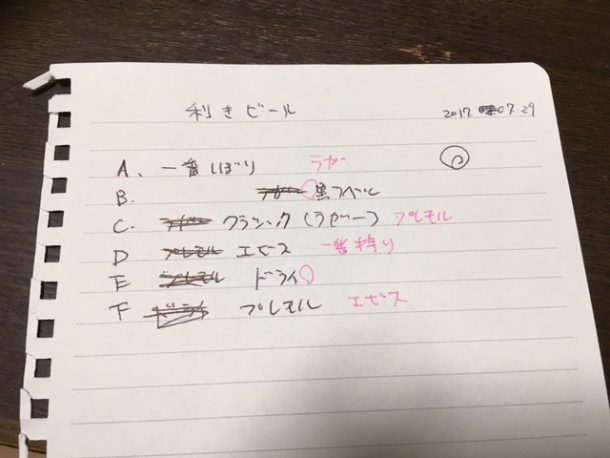 利きビール 2017. 07.29
A、一番しぼり ラガー
B. 黒ラベル
C. クラシック(ラガー) プレモル
D プレモル エビス 一番搾り
E プレモル ドライ
F ドライ プレモル エビス